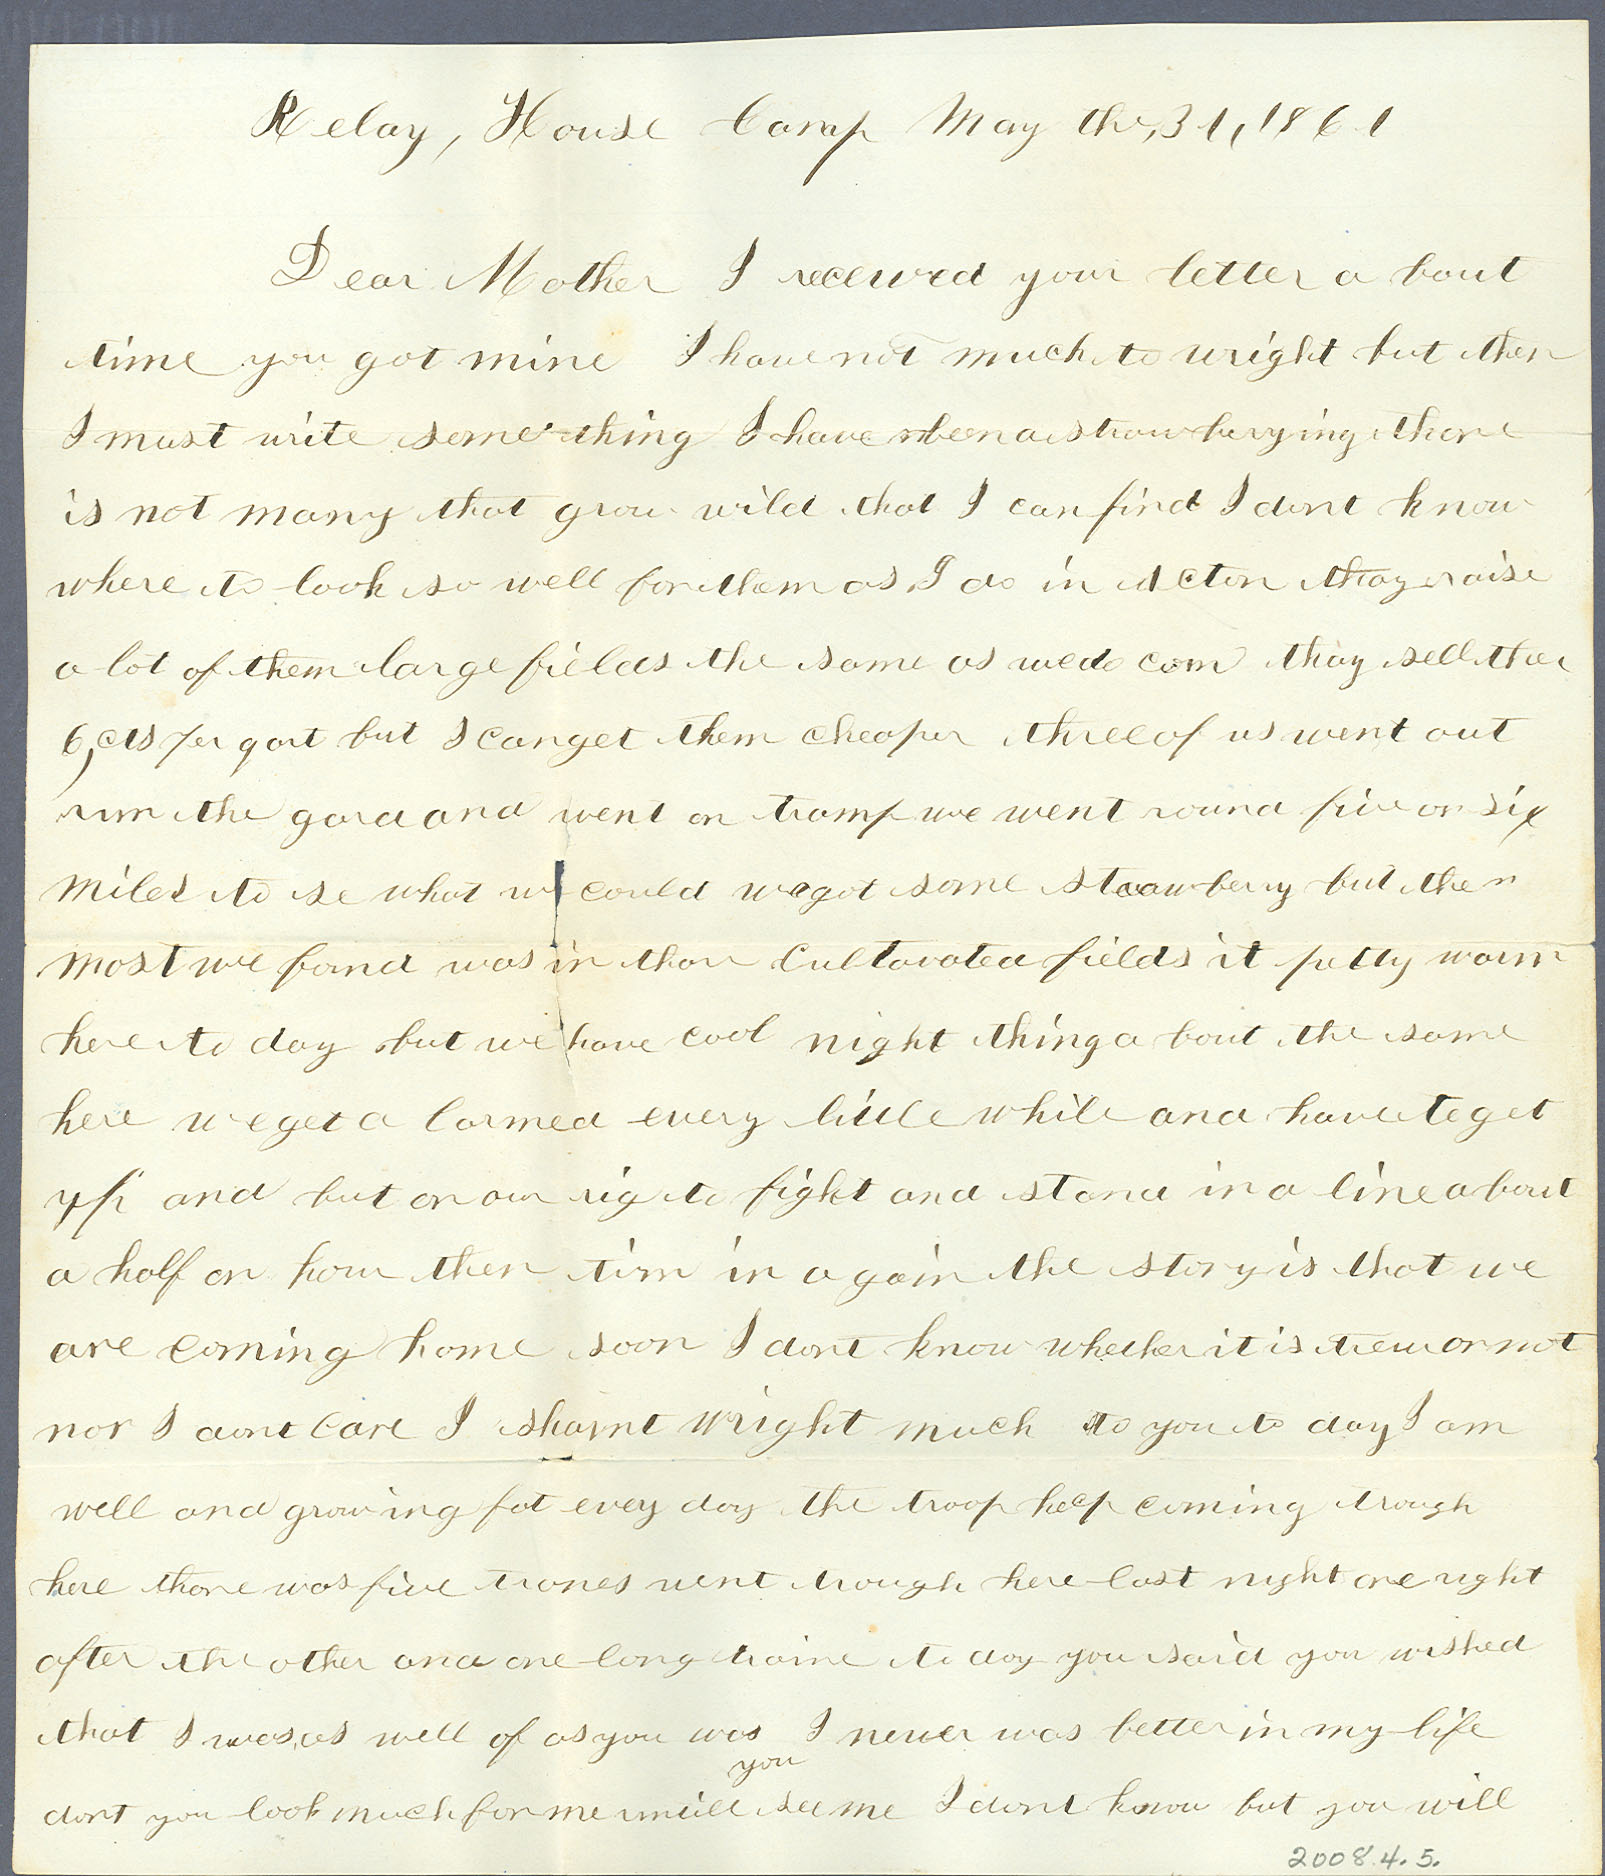 Relay, House Camp May the, 31, 1861
Dear Mother I received your letter a bout
time you got mine I have not much to wright but then
I must write some thing I have been a strawberying thare
is not many that grow wild that I can find I dont know
where to look so well for them as I do in Acton thay raise
a lot of them large fields the same as we do corn thay sell ther
6, cts per qart but I can get them cheaper three of us went out
run the gard and went on tramp we went round five or six
miles to se what we could we got some strawberry but then
most we found was in thare Cultavated fields it petty warm
here to day but we have cool night thing a bout the same
here we get a larmed every little while and have to get
up and but on our rig to fight and stand in a line about
a half an hour then turn in a gain the story is that we
are coming home soon I dont know whether it is trew or not
nor I dont Care I sharnt Wright much to you to day I am
well and growing fat evey day the troop keep coming trough
here thare was five tranes went trough here last night one right
after the other and one long traine to day you said you wished
that I was as well of as you was I never was better in my life
you
dont you look much for me untill see me I dont know but you will
2008.4.5.